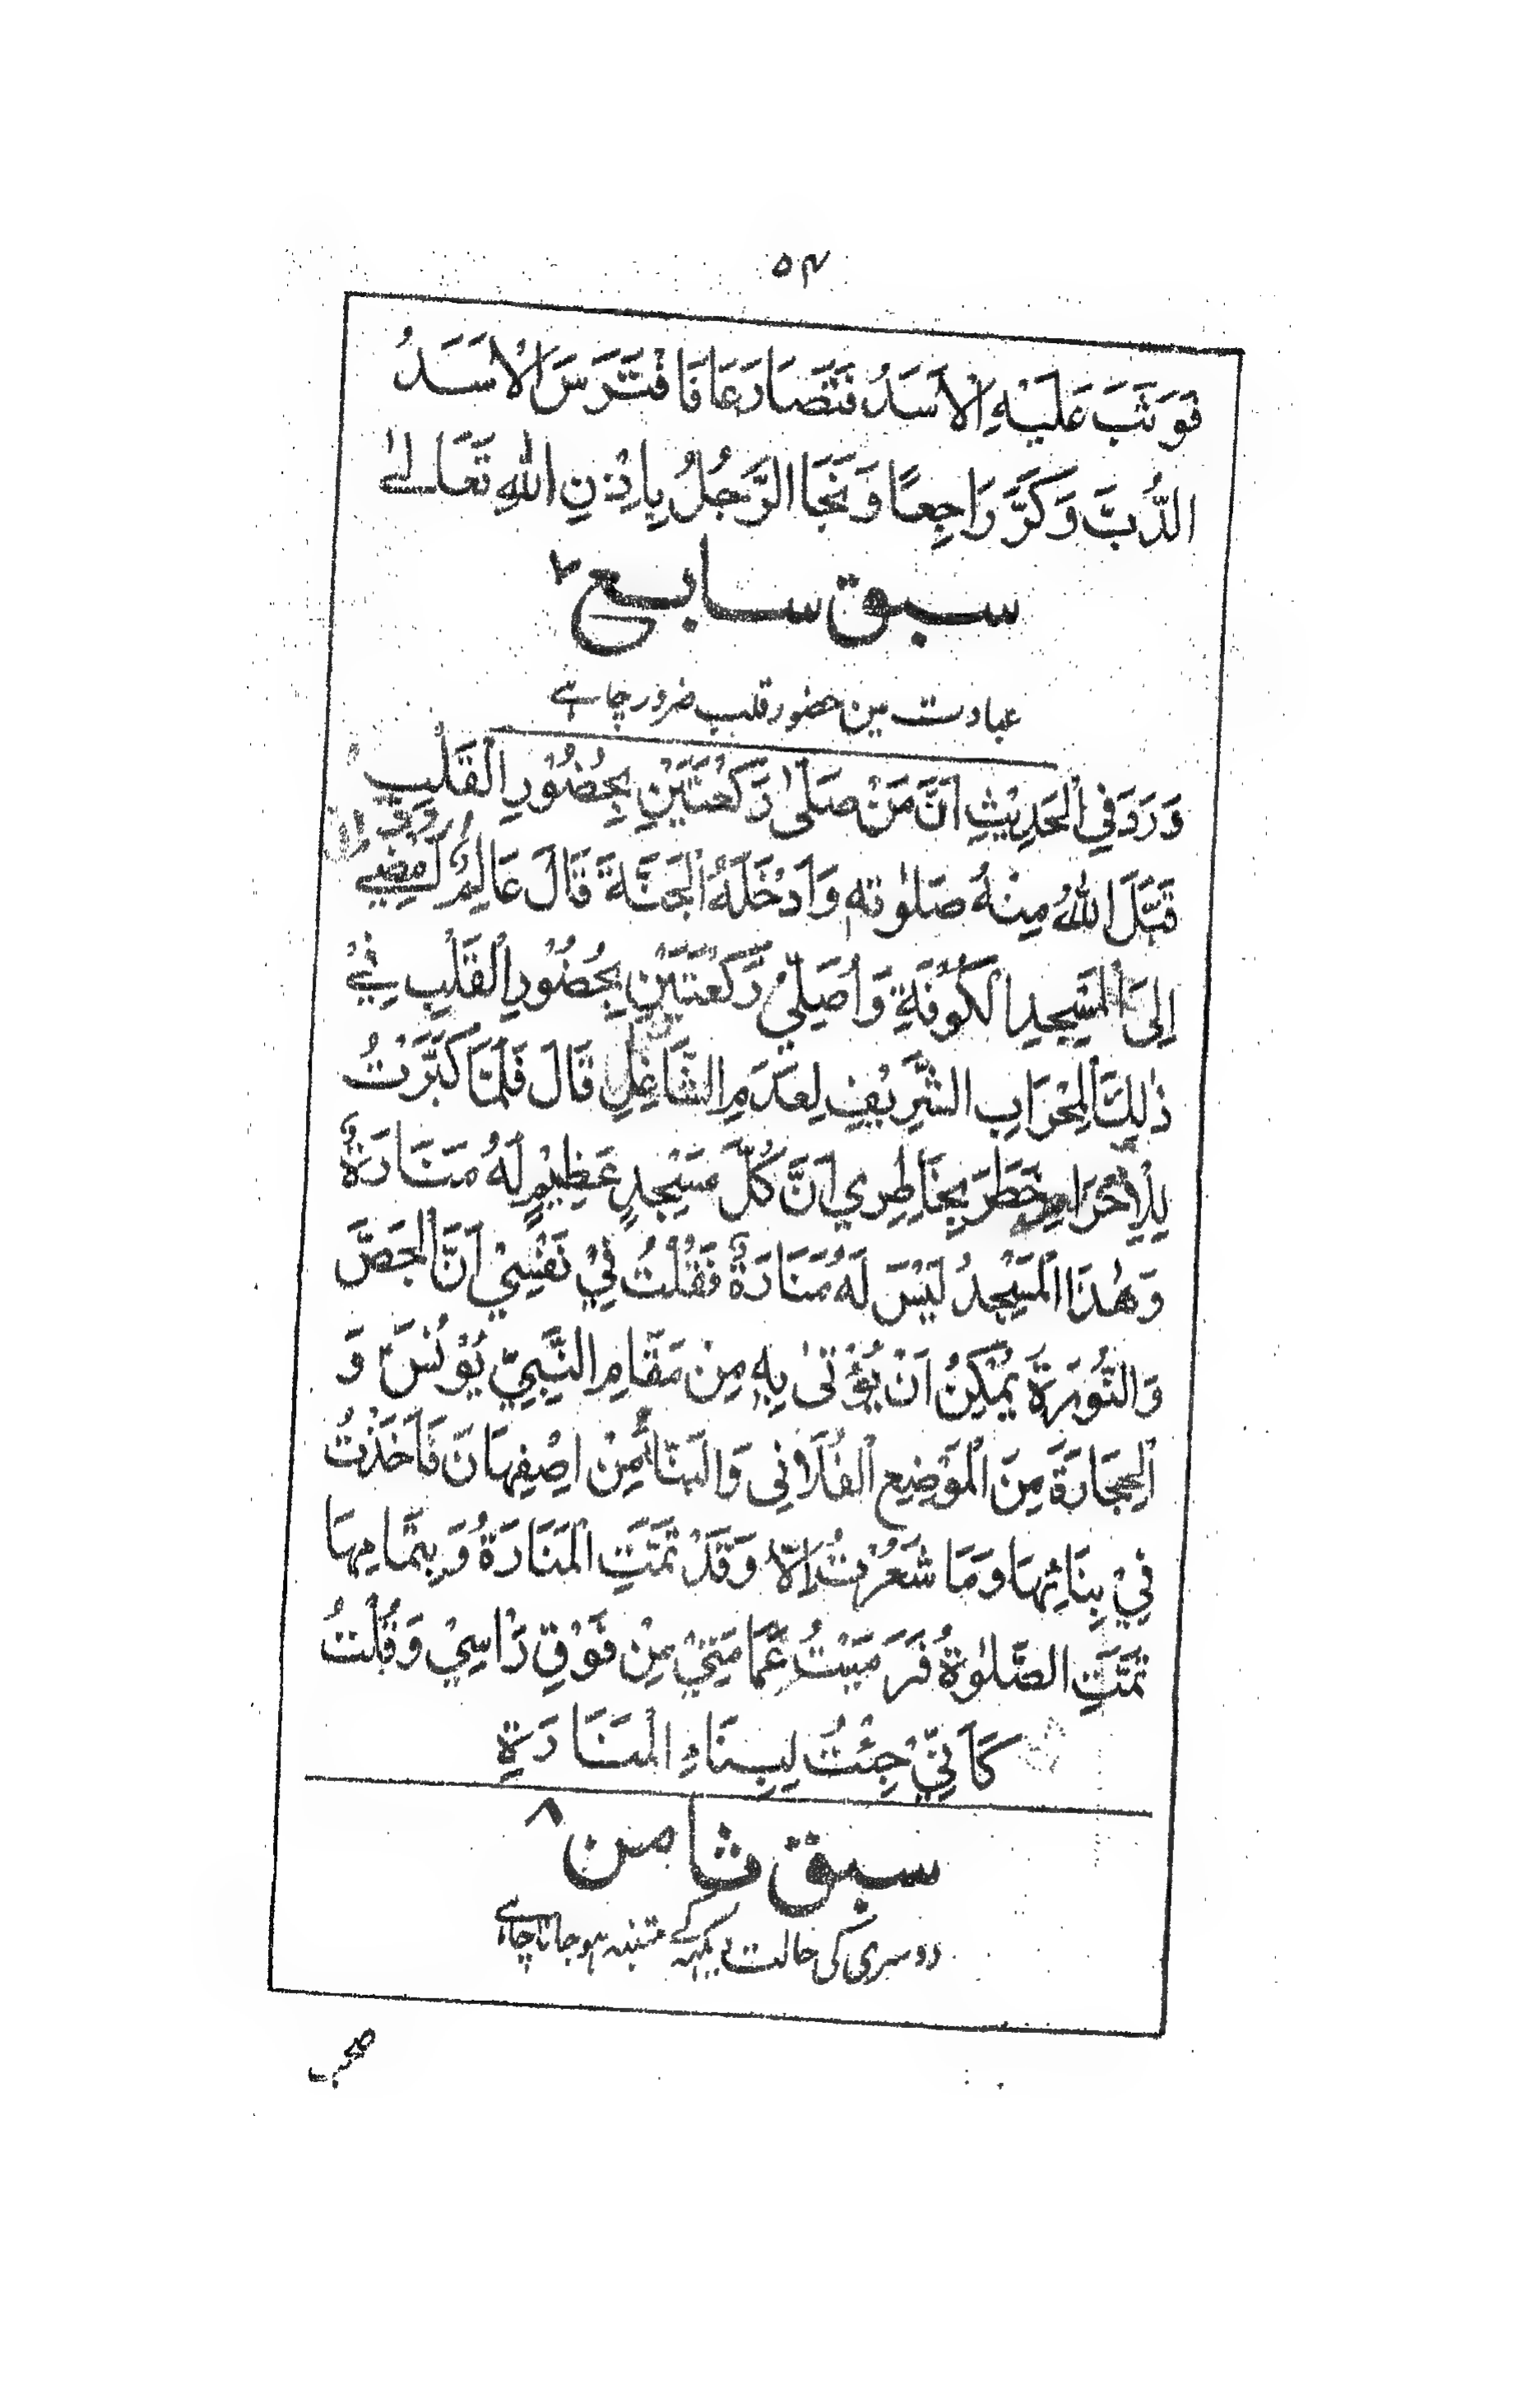 ۵۴
فَوَثَبَ عَلَيْهِ الْاَسَدُ فَتَصَارَعَا فَافْتَرَسَ الْاَسَدُ
الدُّبَّ وَكَرَّ رَاجِعًا وَنَجَا الرَّجُلُ بِاِذْنِ اللهِ تَعَالىٰ
سبق سابع ۷
عبادت مین حضور قلب ضرور چاہئے
وَرَدَ فِي الْحَدِيْثِ اَنَّ مَنْ صَلّىٰ رَكْعَتَيْنِ بِحُضُوْرِ الْقَلْبِ
قَبَّلَ اللهُ مِنْهُ صَلٰوته وَاَدْخَلَهُ الْجَنَّةَ قَالَ عَالِمٌ
اِلىَ الْمَسْجِدِ الْكُوْفَةِ وَاُصَلِّيْ رَكْعَتَيْنِ بِحُضُوْرِ الْقَلْبِ فِيْ
ذٰلِكَ الْمِحْرَابِ الشَّرِيْفِ لِعَدَمِ الشَّاغِلِ قَالَ فَلَمَّا كَبَّرْتُ
لِلْاِحْرَامِ خَطَرَ بِخَاطِرِي اَنَّ كُلَّ مَسْجِدٍ عَظِيْمٍ لَهُ مَنَارَةٌ
وَهٰذَا الْمَسْجِدُ لَيْسَ لَهُ مَنَارَةٌ فَقُلْتُ فِيْ نَفْسِيْ اَنَّ الْجَصَّ
وَالنُّوْرَةَ يُمْكِنُ اَنْ يُؤْتىٰ بِهِ مِنْ مَقَامِ النَّبِيِّ يُوْنُسَ وَ
الْحِجَارَةَ مِنَ الْمَوْضِعِ الْفُلَانِى وَالْبَنَّاءُ مِنْ اِصْفِهَانَ فَاَخَذْتُ
فِيْ بِنَائِهَا وَمَا شَعُرْتُ اِلَّا وَقَدْ تَمَّتِ الْمَنَارَةُ وَبِتَمَامِهَا
تَمَّتِ الصَّلٰوةُ فَرَمَيْتُ عَمَامَتِيْ مِنْ فَوْقِ رَاْسِيْ وَقُلْتُ
كَاَنِّيْ جِئْتُ لِبِنَاءِ الْمَنَارَةِ
سبق ثامن ۸
دوسری کی حالت دیکہہ کے متنبہ ہو جانا چاہئے